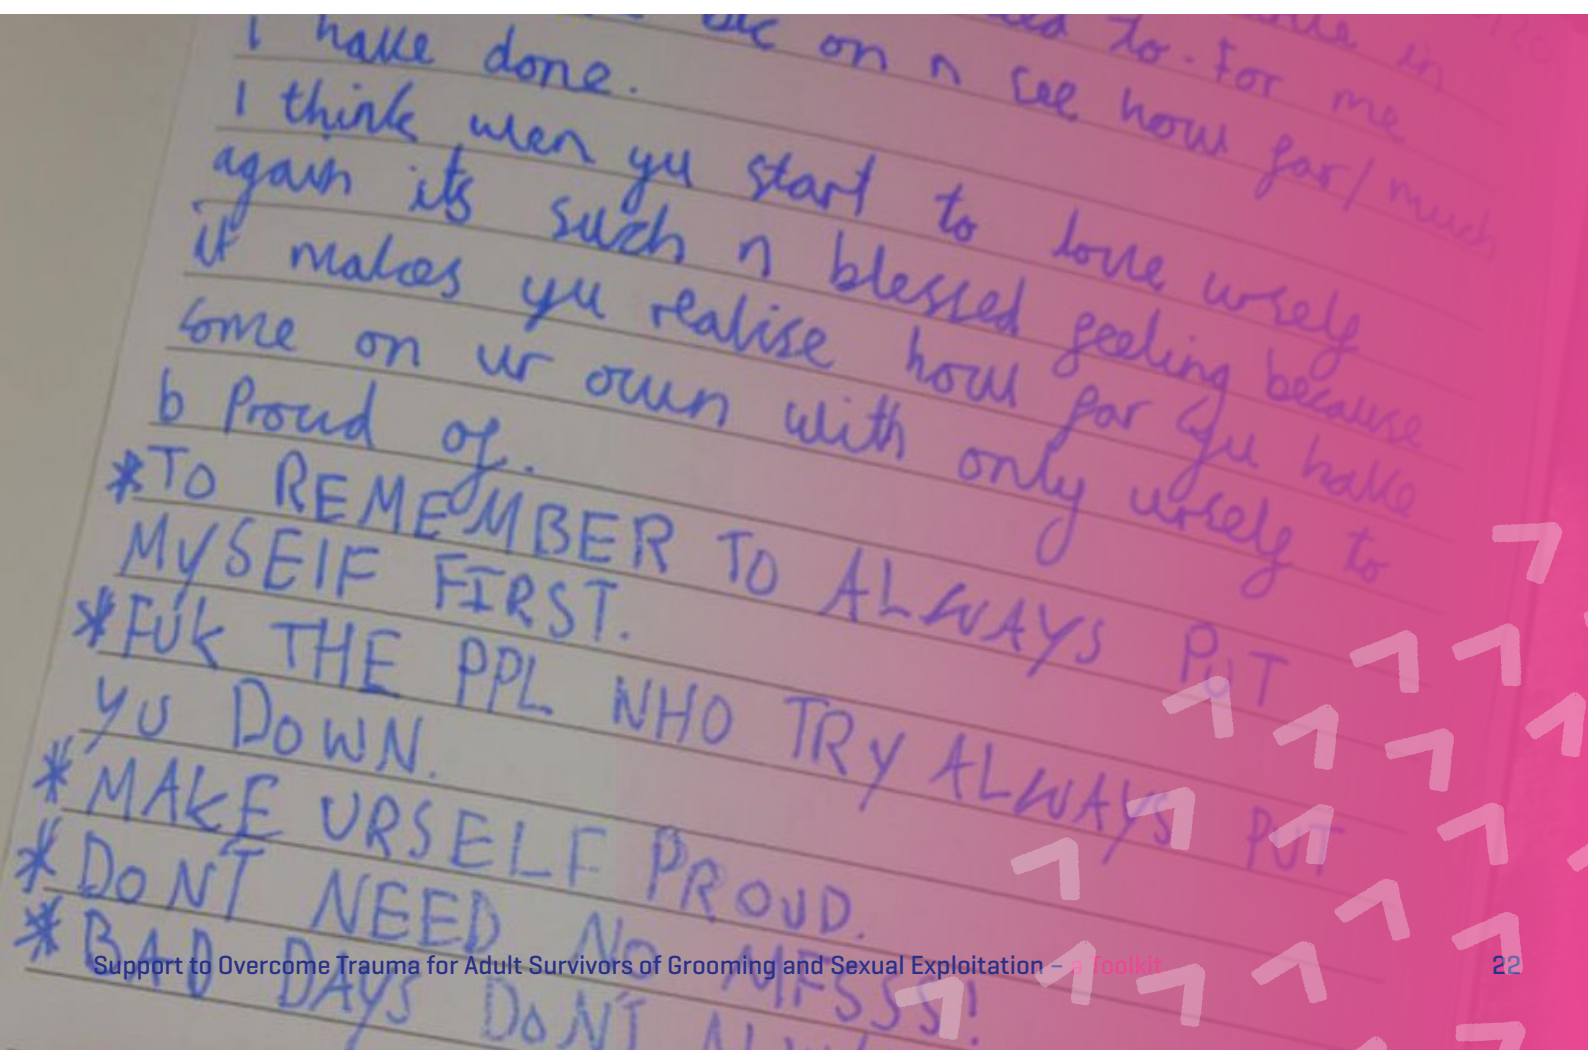 to. For me in
on n see how far/much
I have done.
I think wen yu start to love urself
again its such n blessed feeling because
it makes yu realise how far yu have
come on ur own with only urself to
b Proud of.
*TO REMEMBER TO ALWAYS PUT
MYSElF FIRST.
*FUK THE PPL WHO TRY ALWAYS PUT
YU DOWN.
*MAKE URSELF PROUD.
*DONT NEED NO MFSSS!
*BAD DAYS DONT
Support to Overcome Trauma for Adult Survivors of Grooming and Sexual Exploitation – a Toolkit
22